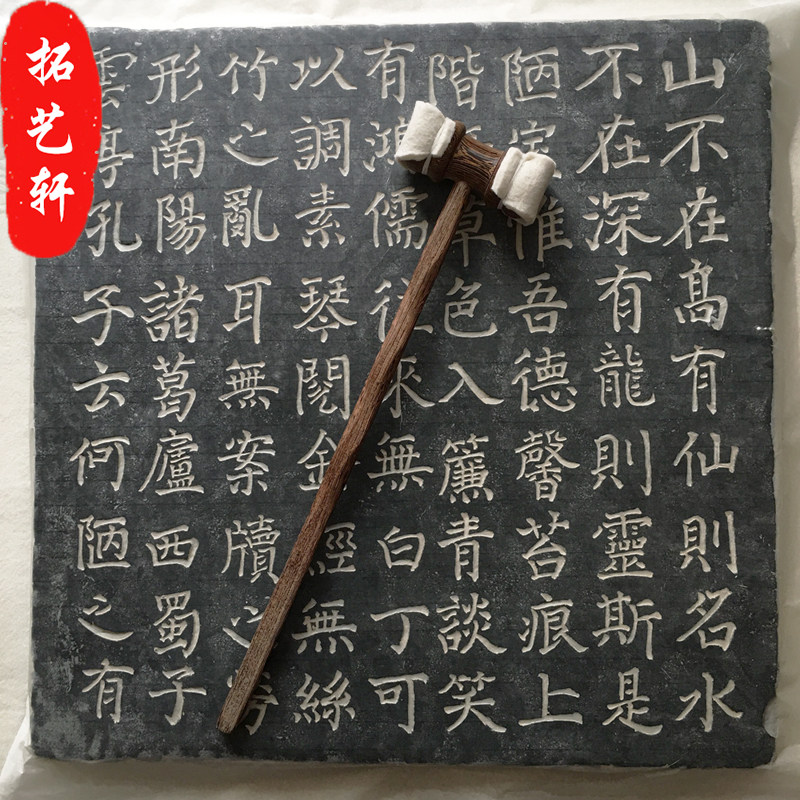 拓艺轩
山不在髙有仙則名水
不在深有龍則靈斯是
陋室惟吾德馨苔痕上
階草色入簾青談笑
有鴻儒往來無白丁可
以調素琴閲金經無絲
竹之亂耳無案牘之勞
形南陽諸葛廬西蜀子
雲亭孔子云何陋之有